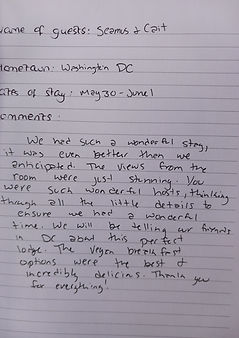 name of guests: Seamus & Cait
Hometown: Washington DC
ates of stay: May 30 - June 1
omments:
We had such a wonderful stay,
it was even better then we
anticipated. The views from the
room were just stunning. You
were such wonderful hosts, thinking
through all the little details to
ensure we had a wonderful
time. We will be telling our friends
in DC about this perfect
lodge. The vegan breakfast
options were the best &
incredibly delicious. Thank you
for everything!